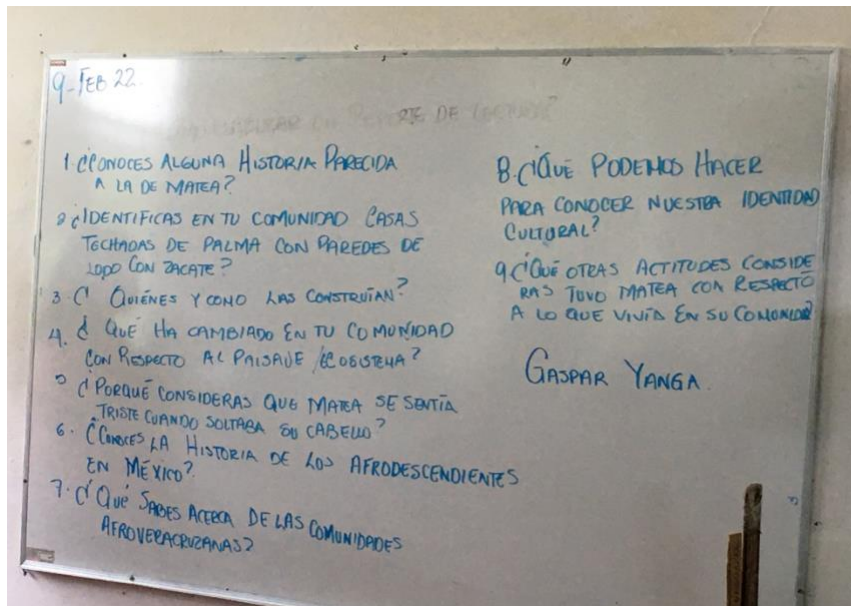 9-FEB 22.
REPORTE DE LECTURA?
1. ¿CONOCES ALGUNA HISTORIA PARECIDA
A LA DE MATEA?
2 ¿IDENTIFICAS EN TU COMUNIDAD CASAS
TECHADAS DE PALMA CON PAREDES DE
LODO CON ZACATE?
3. ¿ QUIÉNES Y COMO LAS CONSTRUÍAN?
4. ¿ QUÉ HA CAMBIADO EN TU COMUNIDAD
CON RESPECTO AL PAISAJE /ECOSISTEMA?
5 ¿PORQUÉ CONSIDERAS QUE MATEA SE SENTÍA
TRISTE CUANDO SOLTABA SU CABELLO?
6. ¿CONOCES LA HISTORIA DE LOS AFRODESCENDIENTES
EN MÉXICO?
7. ¿QUÉ SABES ACERCA DE LAS COMUNIDADES
AFROVERACRUZANAS?
8. ¿QUÉ PODEMOS HACER
PARA CONOCER NUESTRA IDENTIDAD
CULTURAL?
9 ¿QUÉ OTRAS ACTITUDES CONSIDE
RAS TUVO MATEA CON RESPECTO
A LO QUE VIVÍA EN SU COMUNIDAD?
GASPAR YANGA.